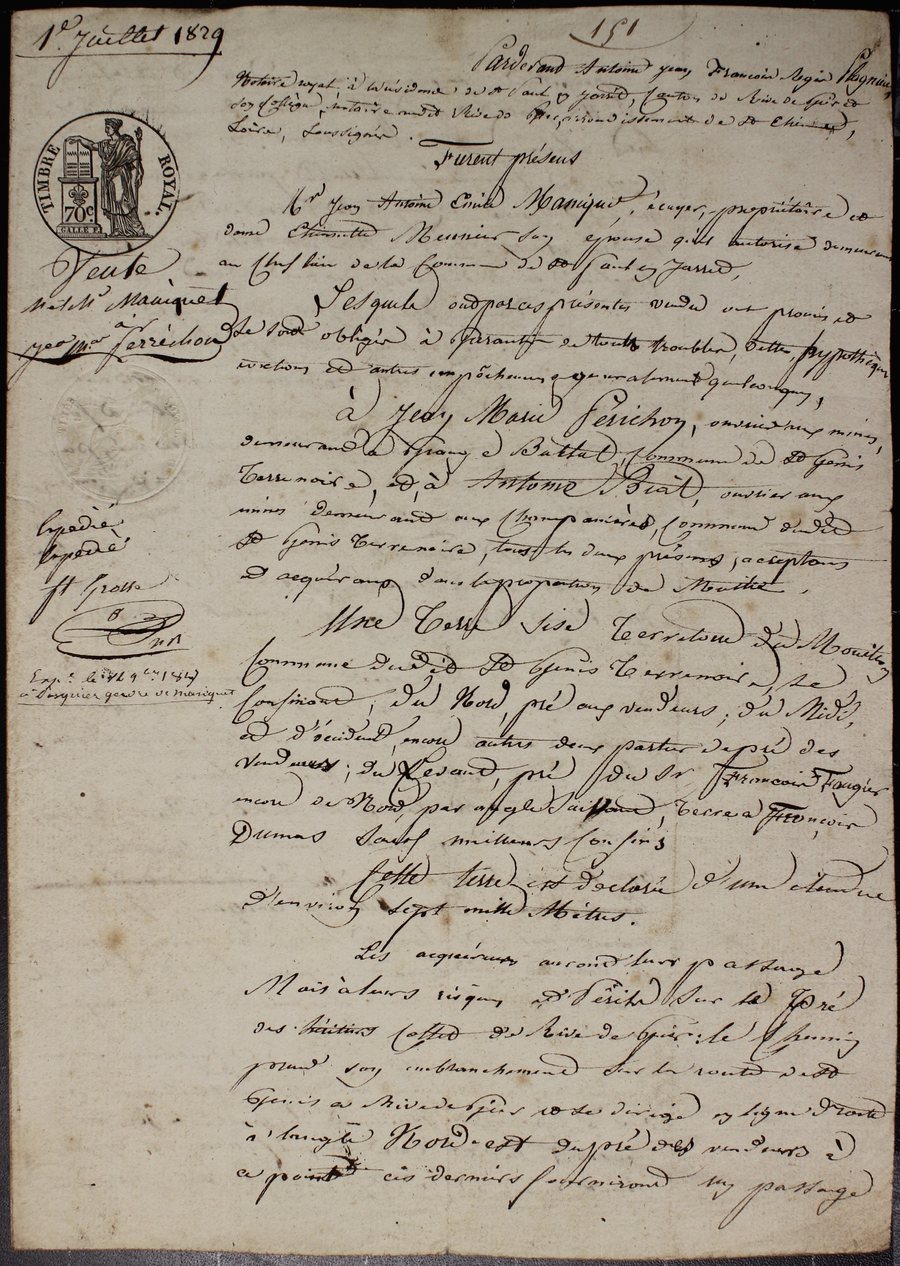 1er Juillet 1829
151
Pardevant Antoine Jean François Régis
Notaire royal, à la résidence de St Paul en Jarret, Canton de Rive de Gier et
son Collègue, notaire audit Rive de Gier, arrondissement de St Etienne,
Loire, Soussignés
Furent présens
TIMBRE ROYAL.
70c.
Mr Jean Antoine Maniquet, écuyer, propriétaire et
dame Etiennette Meunier son épouse qu'il autorise demeurans
au Chef lieu de la Commune de St Paul en Jarret,
Vente
Mr et Me Maniquet
à
Jean Mie Perrichon
Lesquels ont par ces présentes vendu avec promesse et
se sont obligés à garantir de tous troubles, dettes, hypothèques
évictions et autres empêchemens généralement quelconques,
à Jean Marie Perrichon, ouvrier aux mines,
demeurant à Grange Battut, Commune de St Genis
Terrenoire, et, à Antoine Biat, ouvrier aux
mines demeurant aux Champanières, Commune dudit
St Genis Terrenoire, tous les deux présens, acceptans
et acquérans dans la proportion de Moitié.
Expédié
Expédié
et Grosse
Expé. le 9bre
à gendre de Maniquet
Une Terre sise Territoire du Mouillon
Commune dudit St Genis Terrenoire, se
Confinant, du Nord, pré aux vendeurs; du Midi,
et d'occident, encore autres deux parties de pré des
vendeurs; du Levant, pré du Sr François Faugier
encore de Nord, par angle saillant, Terre à François
Dumas Sauf meilleurs Confins
Cette terre est déclarée d'une étendue
d'environ sept mille Mètres.
Les acquéreurs auront leur passage
Mais à leurs risques et Périls sur le Pré
des héritiers Collet de Rive de Gier: le Chemin
prend son embranchement sur la route de St
Genis à Rive de Gier et se dirige en ligne droite
à l'angle Nord-est du pré des vendeurs à
ce point ces derniers fourniront un passage